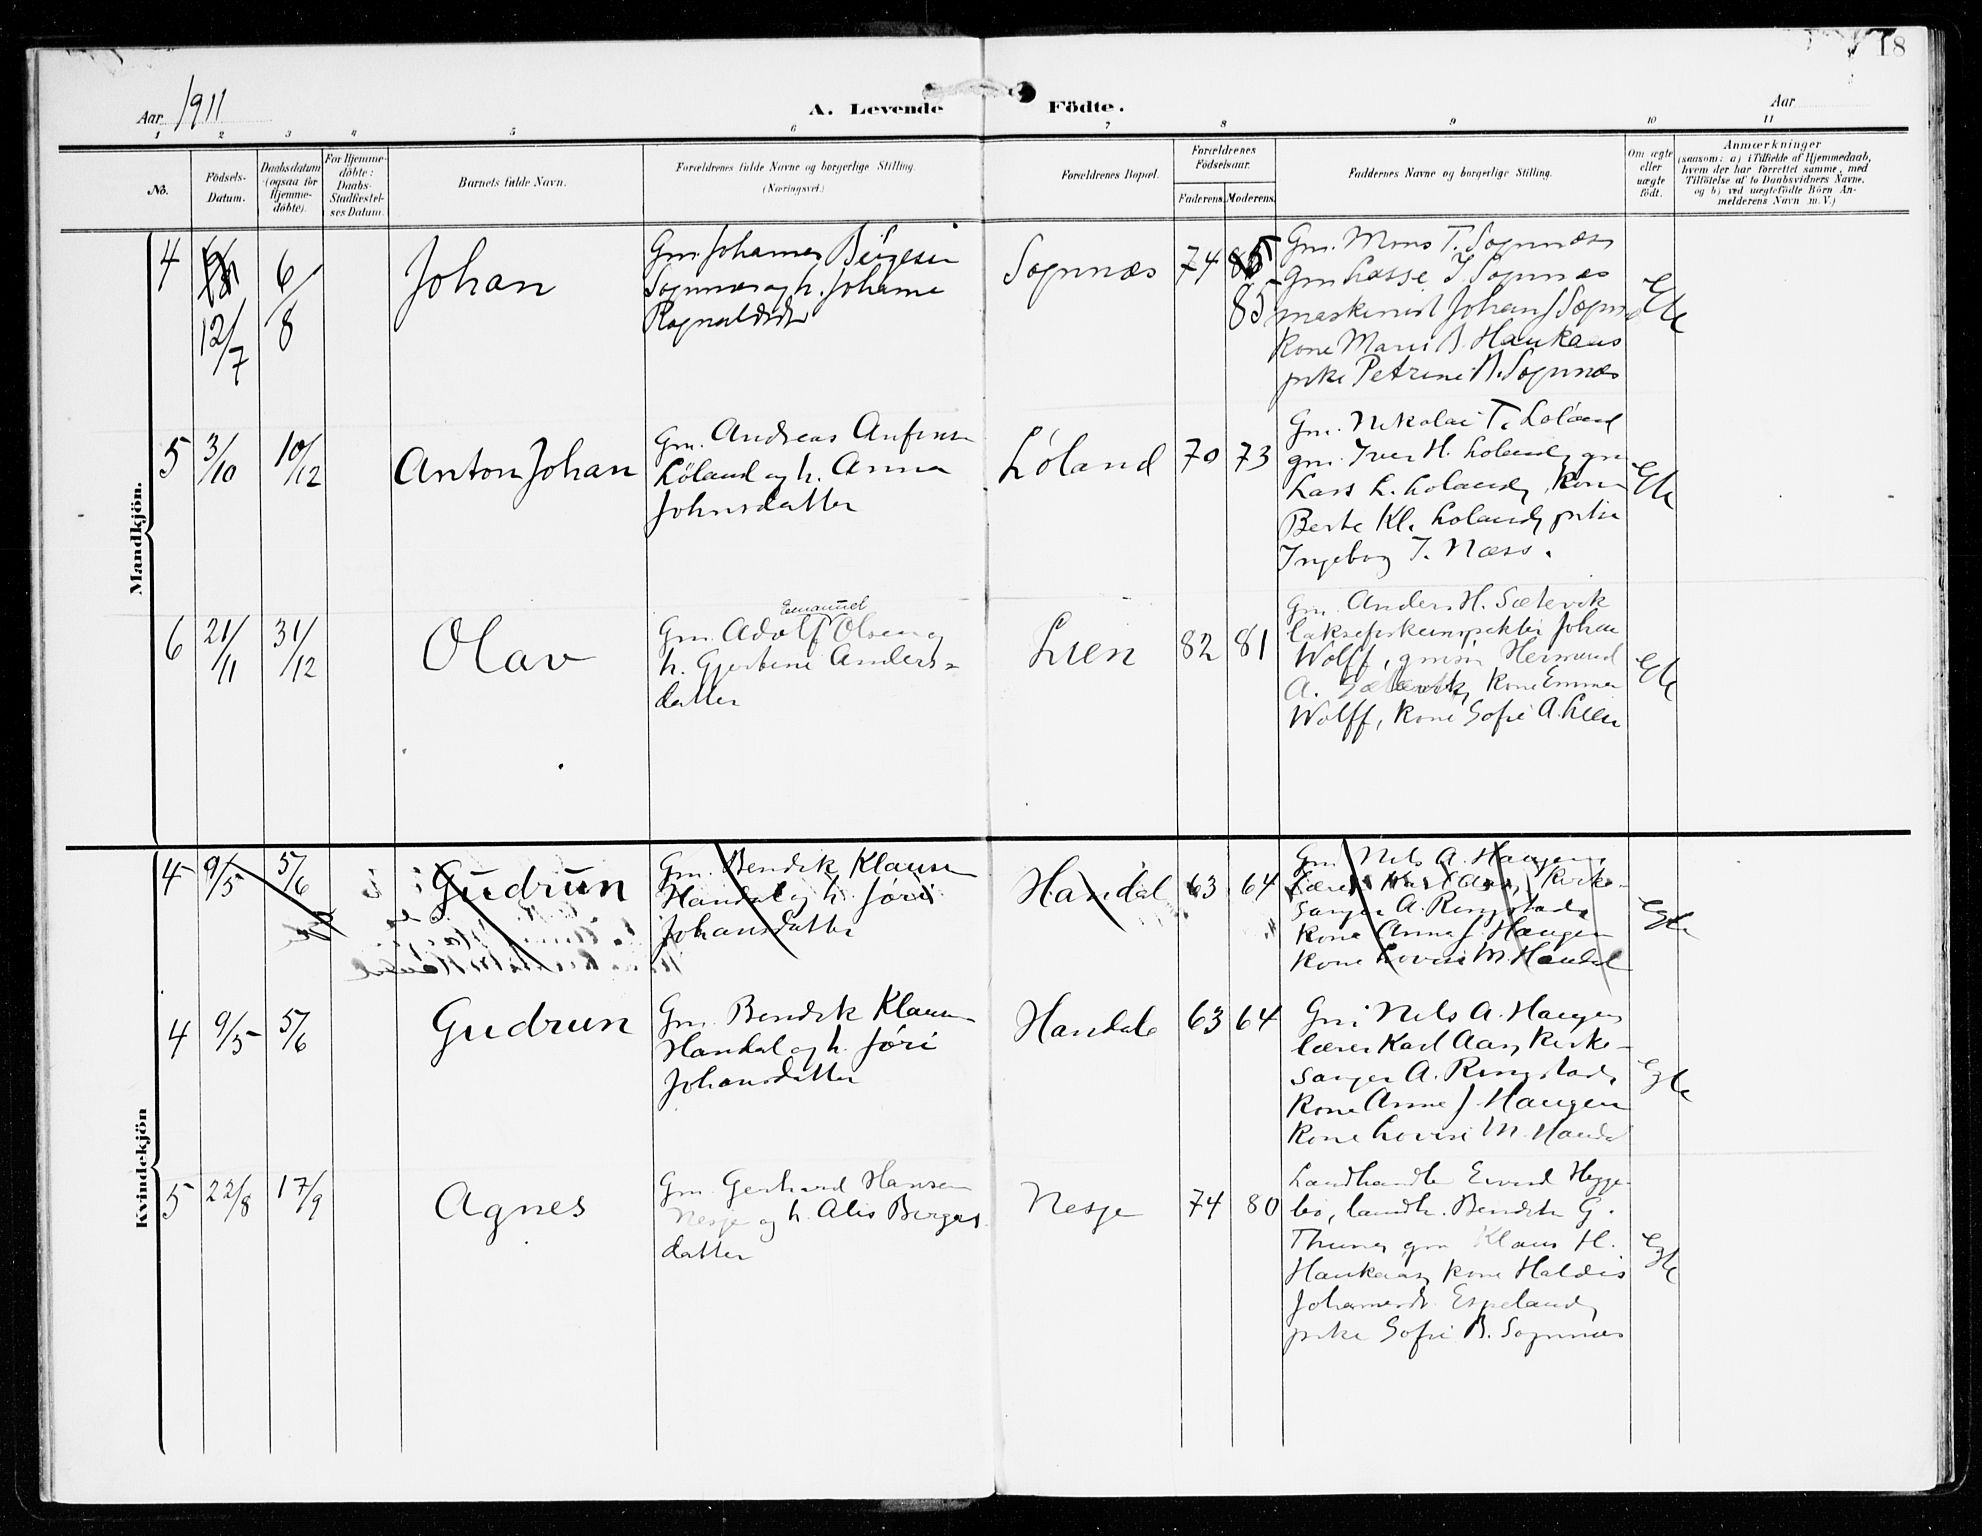 18
Aar 1911
A. Levende Födte.
Aar
1 2 3 4 5 6 7 8 9 10 11
No.
Födsels-
Datum.
Daabsdatum
(ogsaa for
Hjemme-
döbte).
For Hjemme-
döbte:
Daabs-
Stadfæstel-
ses Datum.
Barnets fulde Navn.
Forældrenes fulde Navne og borgerlige Stilling.
(Næringsvei.)
Forældrenes Bopæl.
Forældrenes
Födselsaar.
Faderens. Moderens.
Faddernes Navne og borgerlige Stilling.
Om ægte
eller
uægte
födt.
Anmærkninger
(saasom: a) i Tilfælde af Hjemmedaab,
hvem der har forrettet samme, med
Tilföielse af to Daabsvidners Navne,
og b) ved uægtefödte Börn An-
melderens Navn m. V.)
Mandkjön.
4
12/7
6/8
Johan
Gm. Johannes Børgesen
Sognnæs og h. Johanne
Ragnvaldsdtr
Sognnæs
74
85
Gm. Mons T. Sognnæs
gm Lasse J Sognnæs
maskinist Johan J Sognn
kone Mari B. Haukaas
pike Petrine A. Sognnæs
Egte
5
3/10
10/12
Anton Johan
Gm. Andreas Anfinsen
Løland og h. Anna
Johnsdatter
Løland
70 73
Gm. Nikolai T. Løland
gm. Iver H. Loland, gm
Lars L. Loland, kone
Berte Kl. Loland, pike
Ingeborg T. Næss.
Egte
6
21/11
31/12
Olav
Emanuel
Gm. Adolf Olsen og
h. Gjertine Anders-
datter
Lien
82 81
Gm. Anders H. Sætevik
laksefiskeinspektør Johan
Wolff, gmsøn Hermund
A. Sætevik, kone Emma
Wolff, kone Sofie A. Lien
Egte
Kvindekjön
4 9/5 5/6
Gudrun
Gm. Bendik Klausen
Handal og h. Jøri
Johansdatter
Handal
63 64
Gm. Nils A. Haugen,
lærer Karl Aas, kirke-
sanger A. Ringstad,
kone Anna J Haugen
kone Lovise M. Handal
Egte
4 9/5 5/6
Gudrun
Gm. Bendik Klausen
Handal og h. Jøri
Johansdatter
Handal
63 64
Gm. Nils A. Haugen
lærer Karl Aas, kirke-
sanger A. Ringstad,
kone Anna J Haugen
kone Lovise M. Handal
Egte
5 22/8 17/9
Agnes
Gm. Gerhard Hansen
Nesje og h. Alis Berges
datter
Nesje
74 80
Landhandler Eivind Hegge-
bø, landh. Bendik G.
Thunes, gm Klaus H.
Haukaas, kone Haldis
Johannesdr. Espeland,
pike Sofie B. Sognnæs
Egte